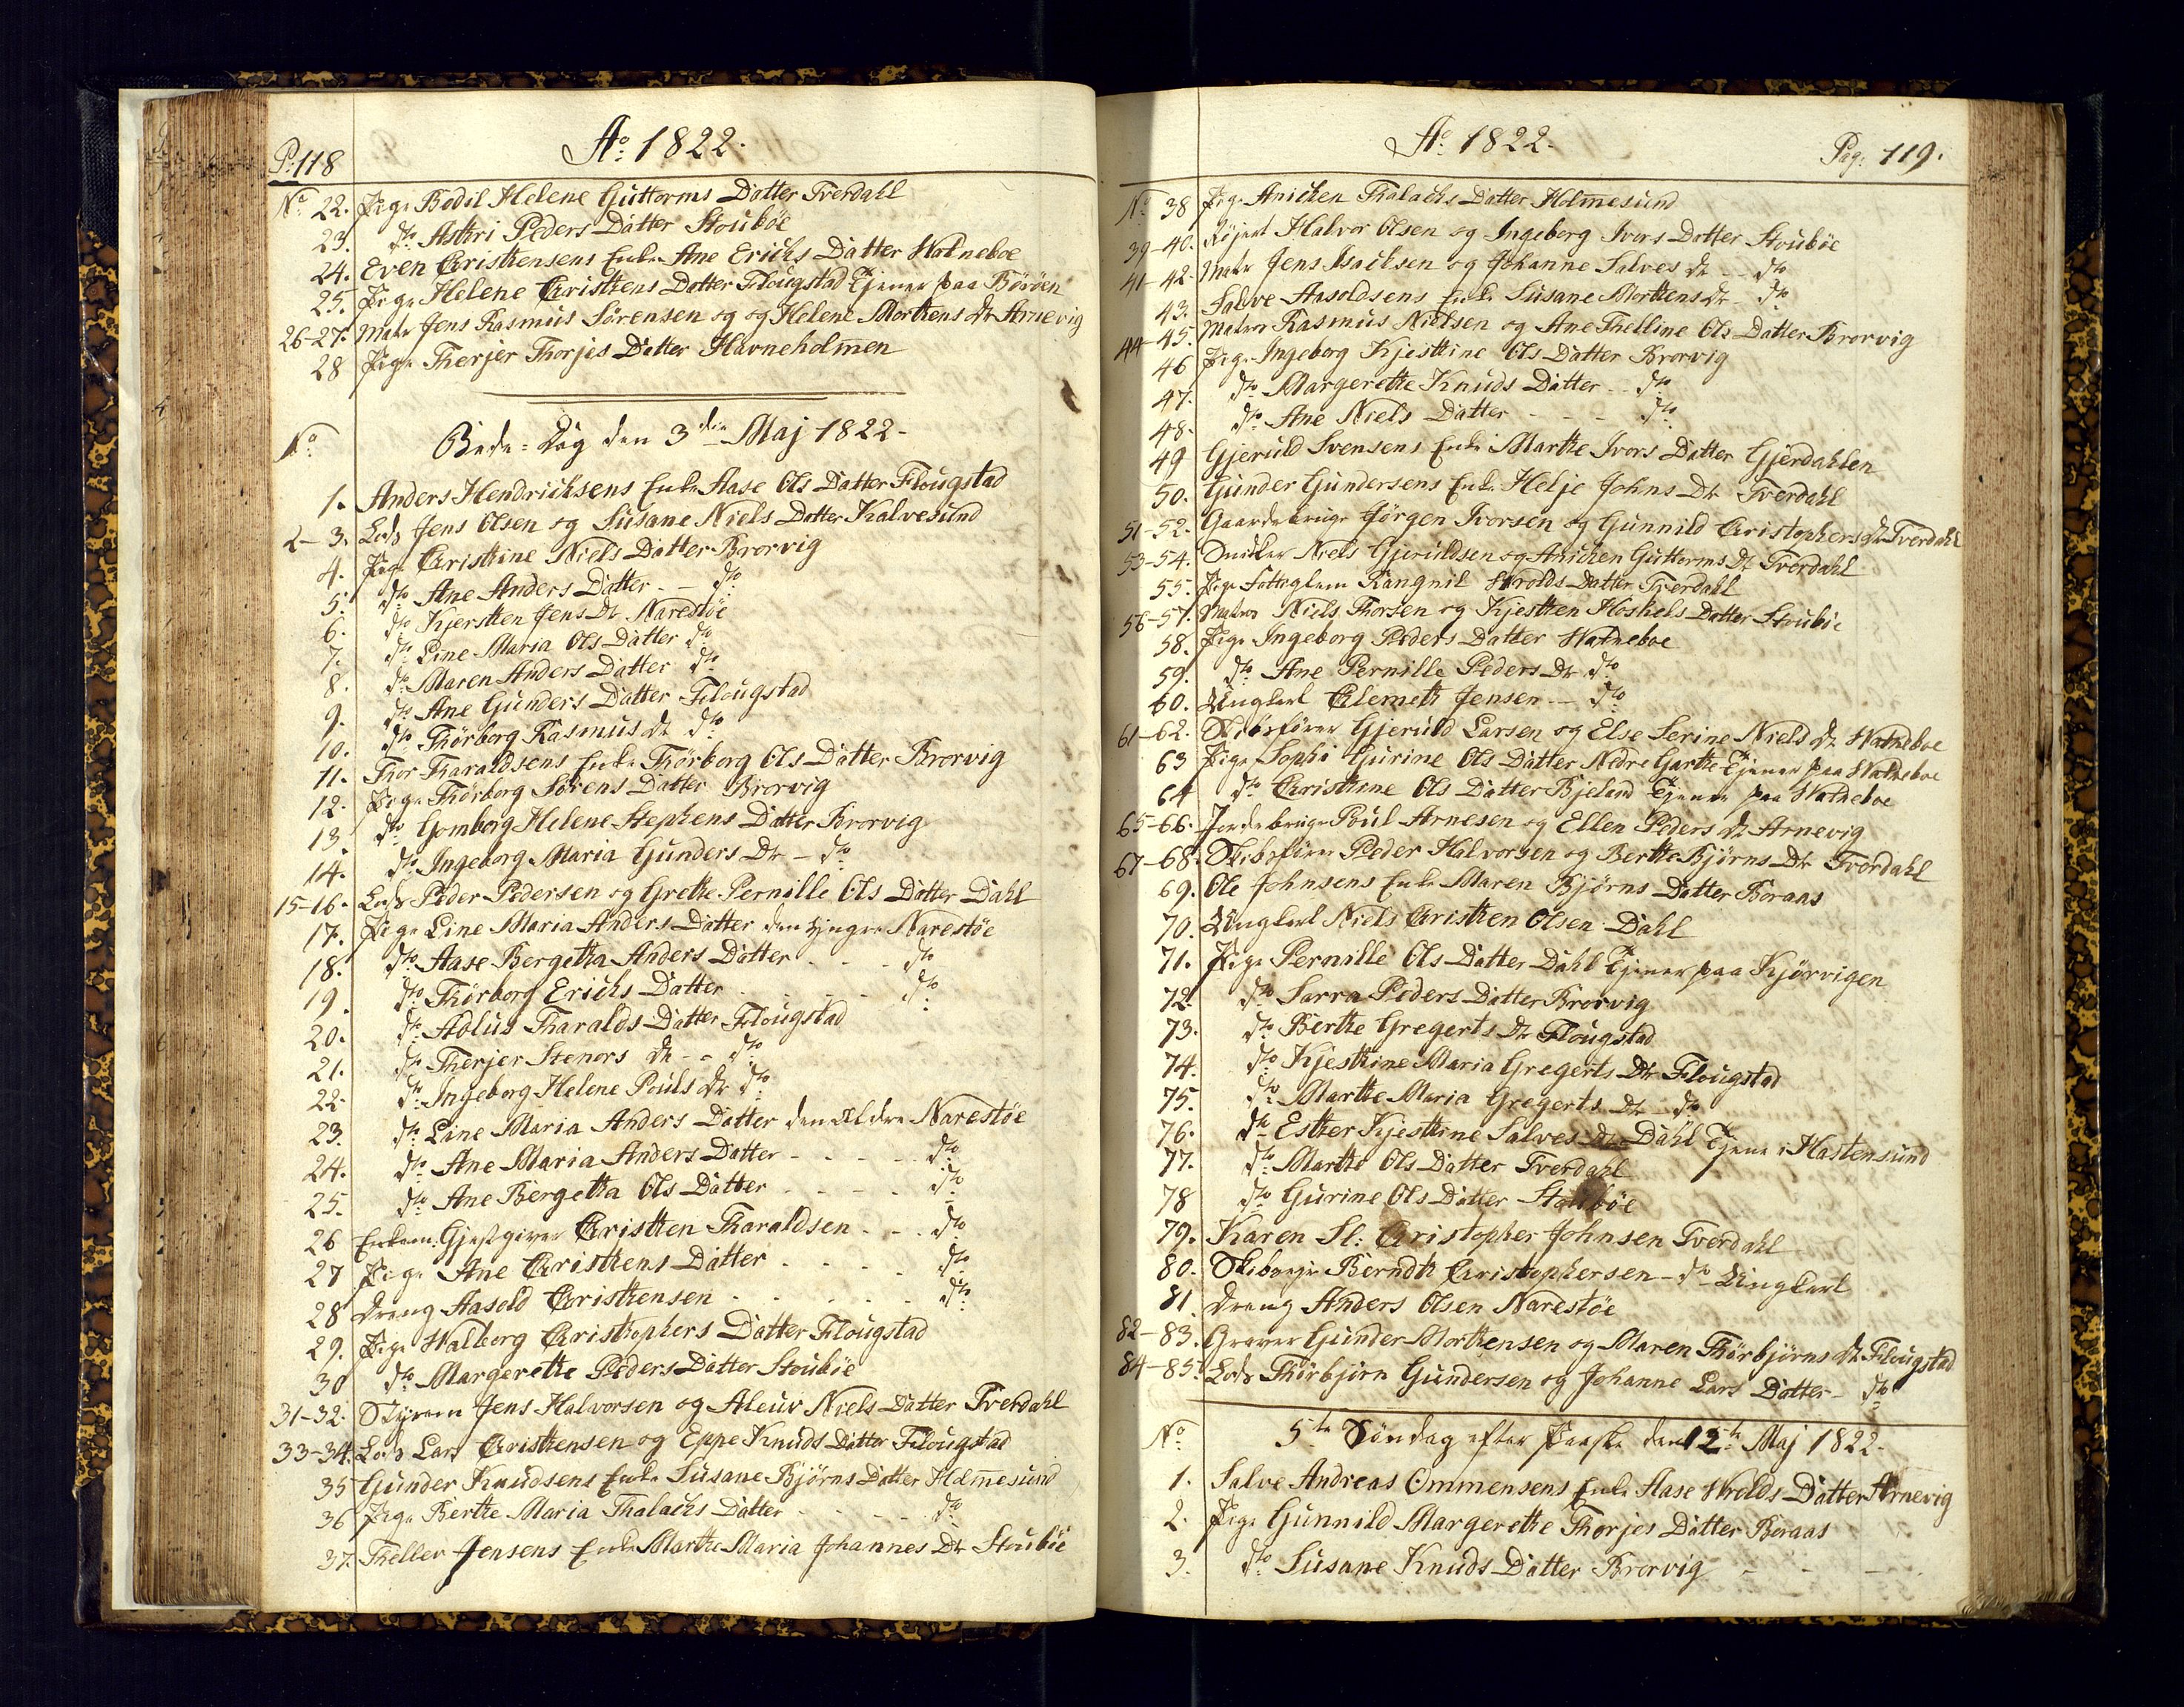 P: 118
Ao 1822.
No 22. Pige Bodil Helene Guttorms Datter Tverdahl
23. do Astri Peders Datter Stoubøe
24. Even Christensens Enke Ane Erichs Datter Watneboe
25. Pige Helene Christens Datter Flougstad Tjener paa Børøen
26-27. Matr Jens Rasmus Sørensen og og Helene Mortens Dr Arnevig
28 Pige Therjer Thorjes Datter Havneholmen
No Bede-Dag den 3die Maj 1822-
1. Anders Hendrichsens Enke Aase Ols Datter Flougstad
2-3. Lods Jens Olsen og Susane Niels Datter Kalvesund
4. Pige Christine Niels Datter Brorvig
5. do Ane Anders Datter - do
6. do Kjersten Jens Dr Narestøe
7. do Line Maria Ols Datter do
8. do Maren Anders Datter do
9. do Ane Gunders Datter Flougstad
10. do Thorborg Rasmus Dr do
11. Thor Tharaldsens Enke Thorborg Ols Datter Brorvig
12. Pige Thorborg Sørens Datter Brorvig
13. do Gomborg Helene Stephens Datter Brorvig
14. do Ingeborg Maria Gunders Dr - do
15-16. Lods Peder Pedersen og Grethe Pernille Ols Datter Dahl
17. Pige Line Maria Anders Datter den yngre Narestøe
18. do Aase Bergetha Anders Datter - - - do
19. do Thorborg Erichs Datter - - - do
20. do Adlus Tharalds Datter Flougstad
21. do Therjer Stenors Dr - - do
22. do Ingeborg Helene Pouls Dr do
23. do Line Maria Anders Datter den Ældre Narestøe
24. do Ane Maria Anders Datter - - - do
25. do Ane Bergetha Ols Datter - - - do
26 Enkem: Gjestgiver Christen Tharaldsen - - - do
27 Pige Ane Christens Datter - - - - do
28 Dreng Aasold Christensen - - - - do
29. Pige Walborg Christophers Datter Flougstad
30 do Margerethe Peders Datter Stoubøe
31-32. Styrm Jens Halvorsen og Aleur Niels Datter Tverdahl
33-34. Lods Lars Christensen og Eppe Knuds Datter Flougstad
35 Gunder Knudsens Enke Susane Bjørns Datter Holmesund
36 Pige Berthe Maria Thalachs Datter - - - do
37. Theller Jensens Enke Marthe Maria Johannes Dr Stoubøe
Ao 1822.
Pag: 119.
No 38 Pige Anichen Thalachs Datter Holmesund
39-40. Halvor Olsen og Ingeborg Ivers Datter Stoubøe
41-42. Matr Jens Isachsen og Johanne Salves Dr - do
43. Salve Aasoldsens Enke Susane Mortens Dr - do
44-45. Matros Rasmus Nielsen og Ane Thelline Ols Datter Brorvig
46 Pige Ingeborg Kjestine Ols Datter Brorvig
47. do Margerethe Knuds Datter - - do
48. do Ane Niels Datter - - - do
49 Gjeruld Svensens Enke Marthe Ivors Datter Gjerdahlen
50. Gunder Gundersens Enke Helje Johns Dr Tverdahl
51-52. Gaardebruger Jørgen Iversen og Gunnild Christophers Dr Tverdahl
53-54. Snidker Niels Gjeruldsen og Anichen Guttorms Dr Tverdahl
55. Pige Fatteglem Rangnil Wrolds Datter Tverdahl
56-57. Matros Niels Thorsen og Kjesten Hoskels Datter Stoubøe
58. Pige Ingeborg Peders Datter Watneboe
59. do Ane Pernille Peders Dr do
60. Ungkarl Clemeth Jensen - - do
61-62. Skibsfører Gjeruld Larsen og Else Serine Niels Dr Watneboe
63 Pige Sophi Gurine Ols Datter Nedre Garthe Tjener paa Watneboe
64 do Christine Ols Datter Bjeland Tjener paa Watneboe
65-66. Jordebruger Poul Arnesen og Ellen Peders Dr Arnevig
67-68. Skibsfører Peder Halvorsen og Berthe Bjørns Dr Tverdahl
69. Ole Johnsens Enke Maren Bjørns Datter Boraas
70. Ungkarl Niels Christen Olsen Dahl
71. Pige Pernille Ols Datter Dahl Tjener paa Kjørvigen
72. do Sarra Peders Datter Brorvig
73. do Berthe Gregerts Dr Flougstad
74. do Kjestine Maria Gregerts Dtr Flougstad
75. do Marthe Maria Gregerts Dr - do
76. do Esther Kjestine Salves Dr Dahl Tjene i Hastensund
77. do Marthe Ols Datter Tverdahl
78 do Gurine Ols Datter Stoubøe
79. Karen Sl: Christopher Johnsen Tverdahl
80. Berndt Christophersen - do Ungkarl
81 Dreng Anders Olsen Narestøe
82-83. Graver Gunder Mortensen og Maren Thorbjørns Dr Flougstad
84-85. Lods Thorbjørn Gundersen og Johanne Lars Datter - do
No 5te Søndag efter Paaske den 12te Maj 1822-
1. Salve Andreas Ommensens Enke Aase Wrolds Datter Arnevig
2. Pige Gunnild Margerethe Thorjes Datter Boraas
3. do Susane Knuds Datter Brorvig